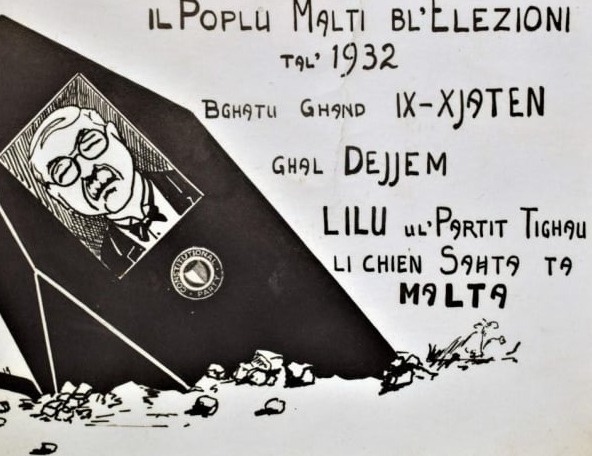 IL POPLU MALTI BL'ELEZIONI
TAL' 1932
BGHATU GHAND IX-XJATEN
GHAL DEJJEM
LILU UL'PARTIT TIGHAU
LI CHIEN SAHTA TA
MALTA
CONSTITUTIONAL PARTY